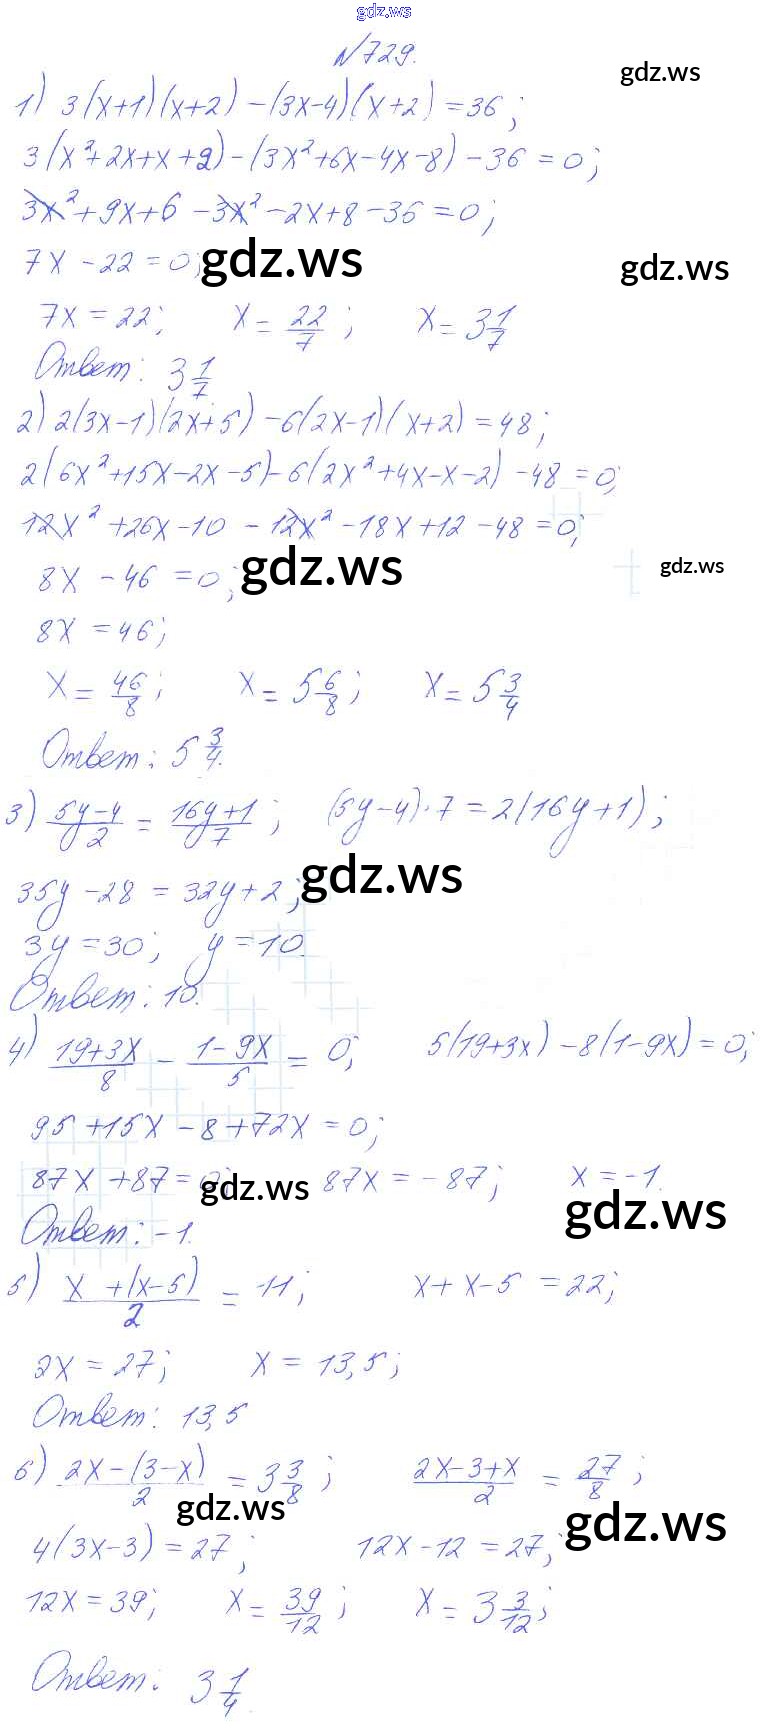 gdz.ws
№729.
gdz.ws
1) 3(x+1)(x+2) -(3x-4)(x+2) =36;
3(x²+2x+x+2)-(3x²+6x-4x-8) -36 =0;
3x²+9x+6 -3x²-2x+8-36=0;
7x -22 =0;
gdz.ws gdz.ws
7x =22; x = 22/7; x = 3 1/7
Ответ: 3 1/7
2) 2(3x-1)(2x+5) -6(2x-1)(x+2) =48;
2(6x²+15x-2x-5)-6(2x²+4x-x-2) -48 =0;
12x²+26x-10 -12x²-18x+12 -48=0;
8x -46 =0;
gdz.ws gdz.ws
8x =46;
x = 46/8; x = 5 6/8; x = 5 3/4
Ответ: 5 3/4.
3) (5y-4)/2 = (16y+1)/7; (5y-4)·7 =2(16y+1);
35y -28 = 32y+2;
gdz.ws
3y =30; y =10.
Ответ: 10.
4) (19+3x)/8 - (1-9x)/5 = 0; 5(19+3x) -8(1-9x)=0;
95 +15x -8+72x =0;
87x +87=0; 87x = -87; x =-1.
gdz.ws gdz.ws
Ответ: -1.
5) (x +(x-5))/2 = 11; x+ x-5 =22;
2x = 27; x = 13,5;
Ответ: 13,5
6) (2x-(3-x))/2 = 3 3/8; (2x-3+x)/2 = 27/8;
gdz.ws gdz.ws
4(3x-3) =27; 12x-12 =27;
12x=39; x = 39/12; x = 3 3/12;
Ответ: 3 1/4.